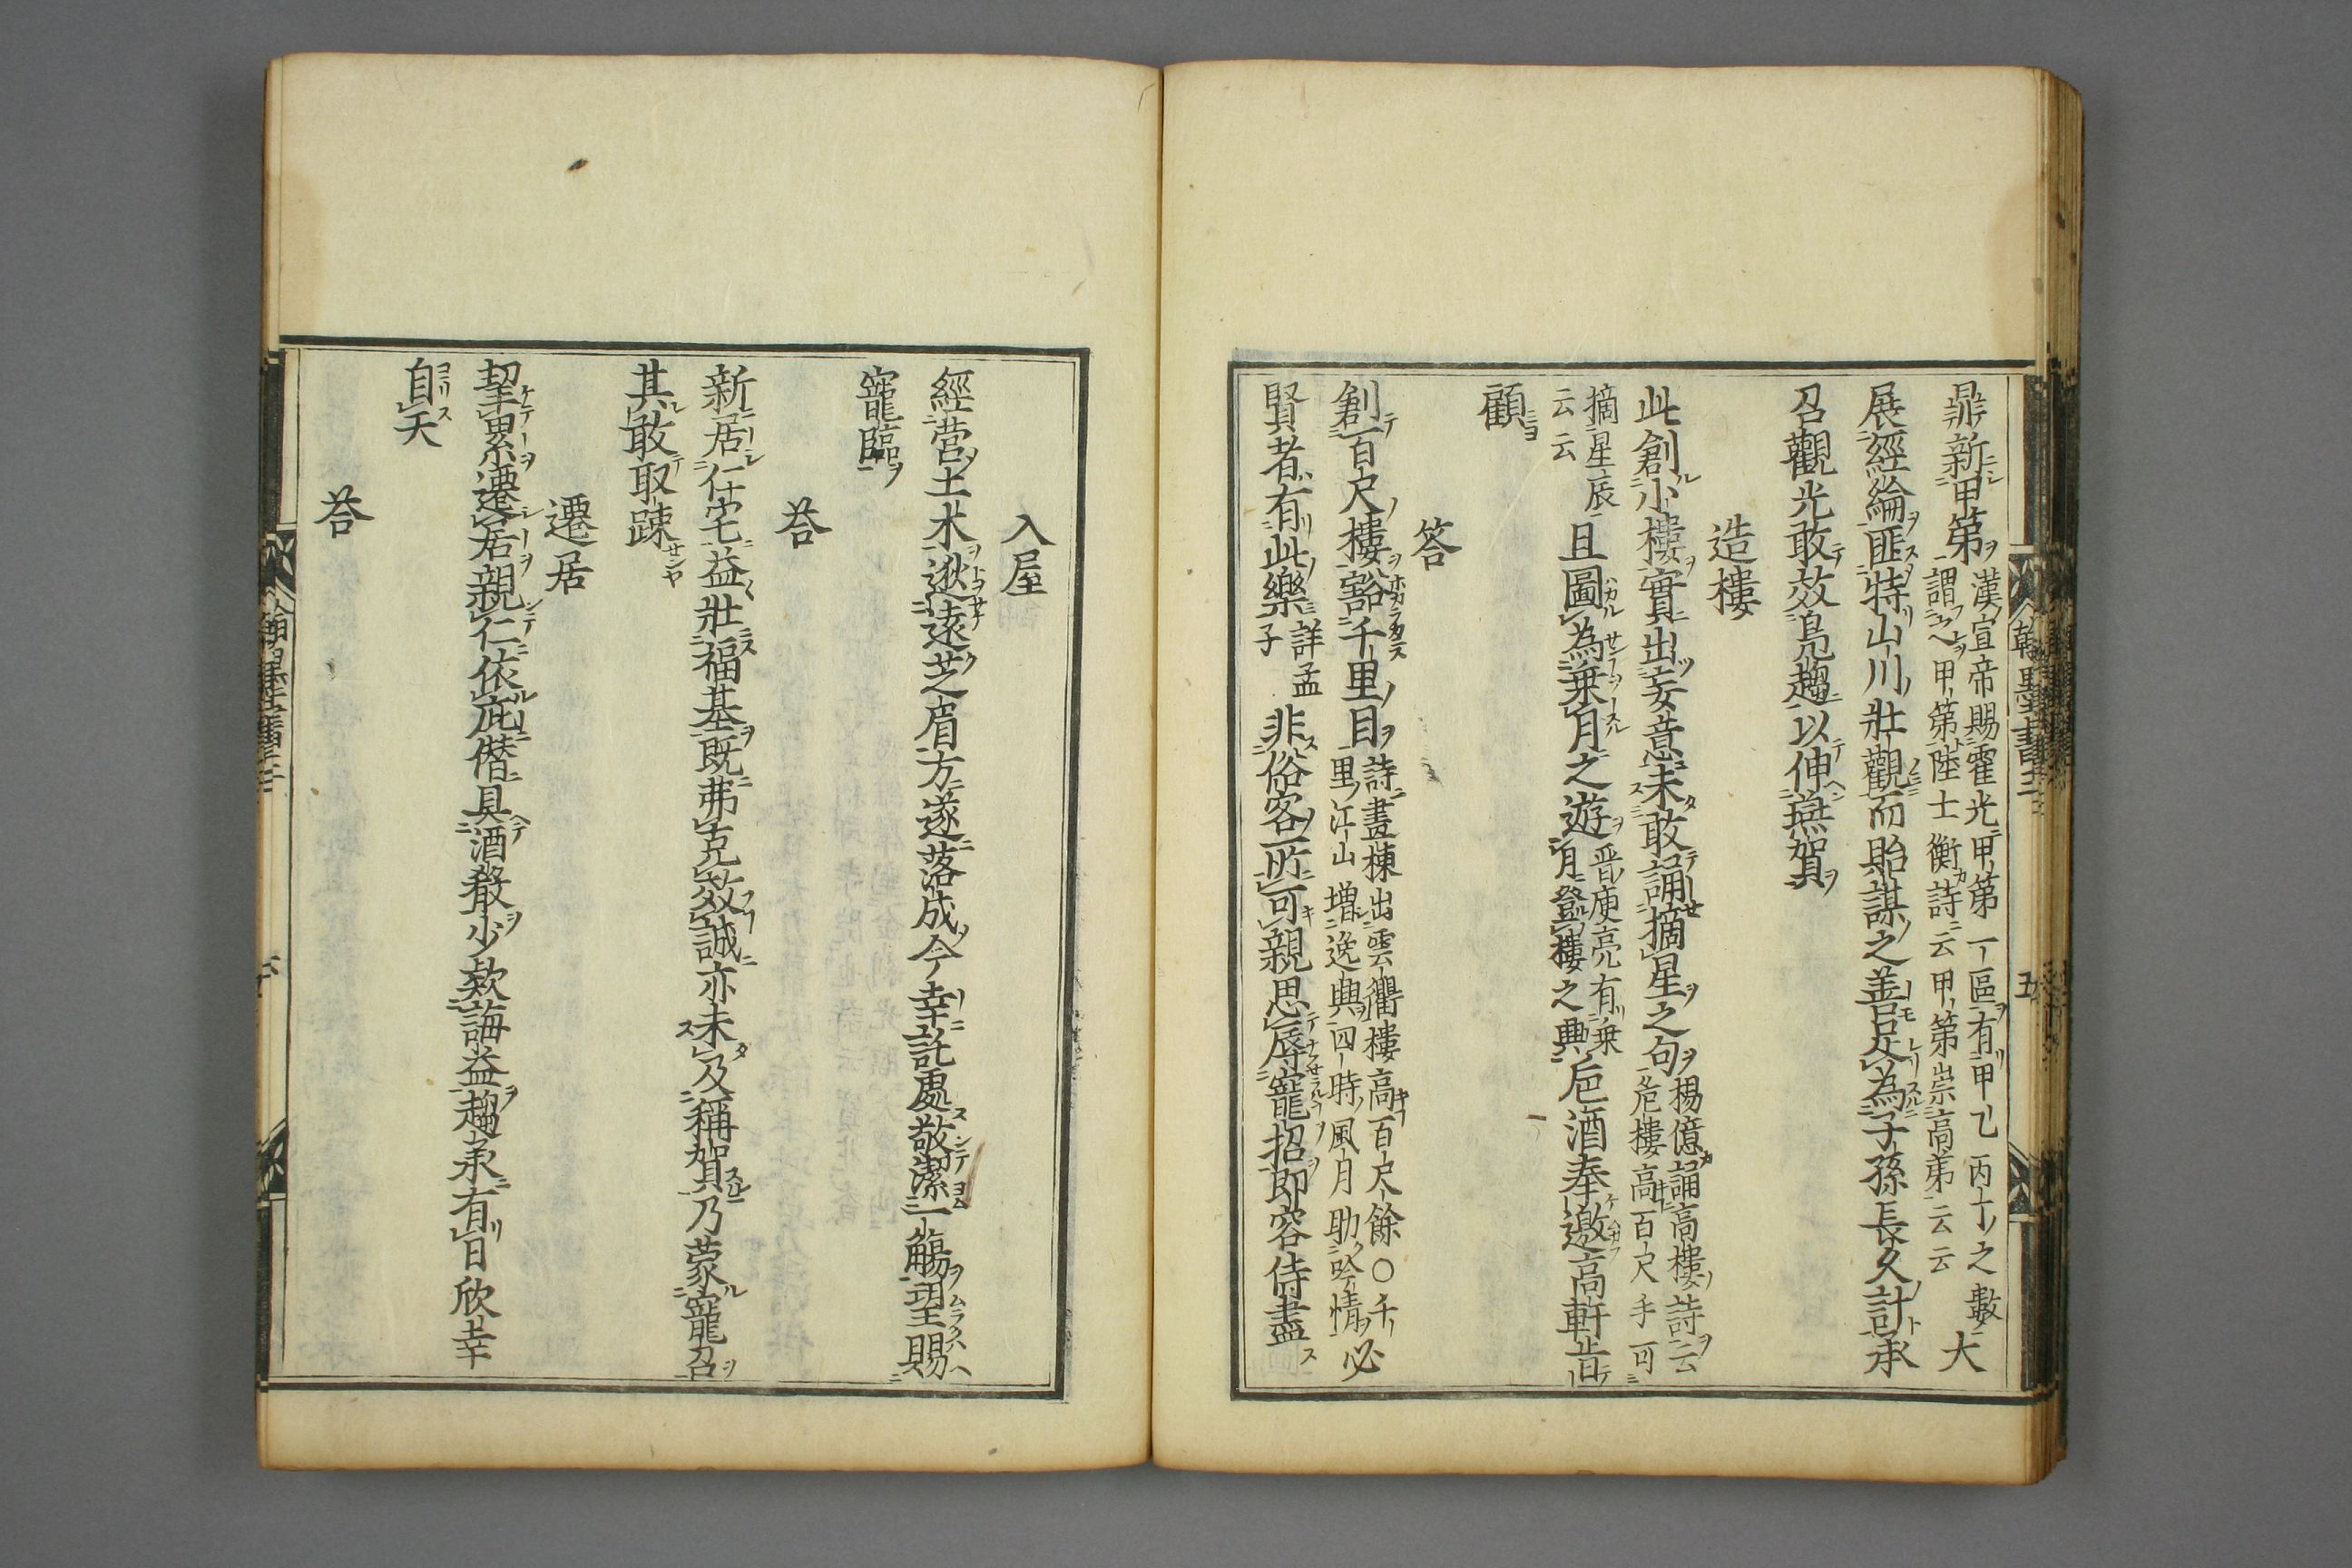 鼎新甲第漢宣帝賜霍光甲第一區有甲乙丙丁之數謂之甲第陸士衡詩云甲第崇高第云云大
展經綸匪特山川壯觀而貽謀之善足為子孫長久計承
召觀光敢效鳧趨以伸燕賀
造樓
此創小樓實出妄意未敢誦摘星之句楊億誦高樓詩云危樓高百尺手可
摘星辰云云且圖為乗月之遊晋庾亮有乗月登樓之興巵酒奉邀高軒一
顧
答
創百尺樓豁千里目詩畫棟出雲衢樓高百尺餘○千里江山増逸興四時風月助吟情必
賢者有此樂詳孟子非俗客所可親思辱寵招即容侍盡
入屋
經營土木遬遠芝眉方遂落成今幸託處敬潔一觴望賜
寵臨
荅
新居仕宅益壯福基既弗克效誠亦未及稱賀乃蒙寵召
其敢取踈
遷居
挈累遷居親仁依庇僣具酒殽少欵誨益趨承有日欣幸
自天
荅
翰墨書三
五